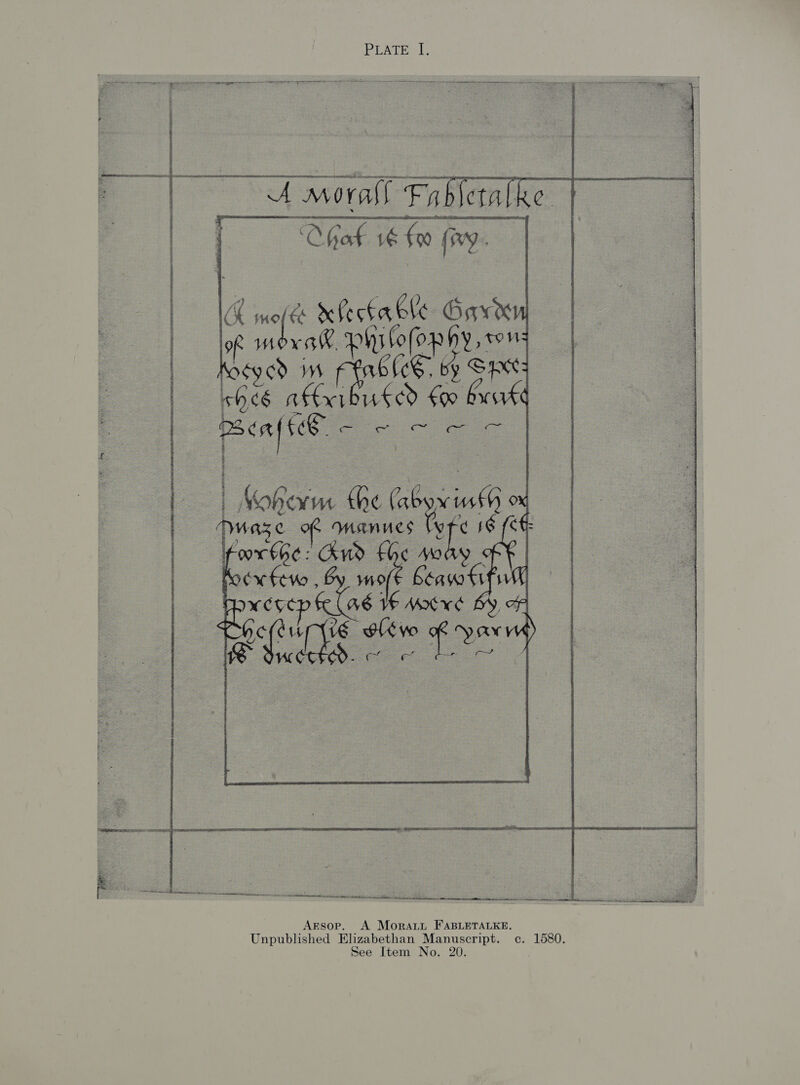 PLATE I.
A Morall Fabletalke
That is to say.
A moste delectable Garden
of morall philosophy, con=
veyed in ffables, by Spee=
ches attributed too brute
Beastes. ~ ~ ~ ~ ~
Wherin the labyrinth or
maze of mannes lyfe is set
foorthe: And the way of
vertew, by most beawtifull
preceptes (as it weere by
Theseus his clew of yarne)
is directed. ~ ~ ~ ~
AESOP. A MORALL FABLETALKE.
Unpublished Elizabethan Manuscript. c. 1580.
See Item No. 20.